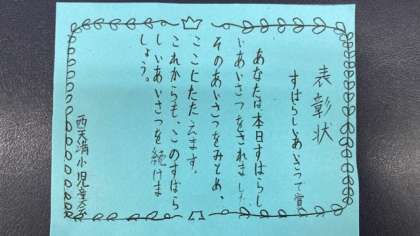 表彰状
すばらしいあいさつで賞
あなたは本日すばらし
いあいさつをされました。
そのあいさつをみとめ、
ここにたたえます。
これからも、このすばら
しいあいさつを続けま
しょう。
西天満小児童会